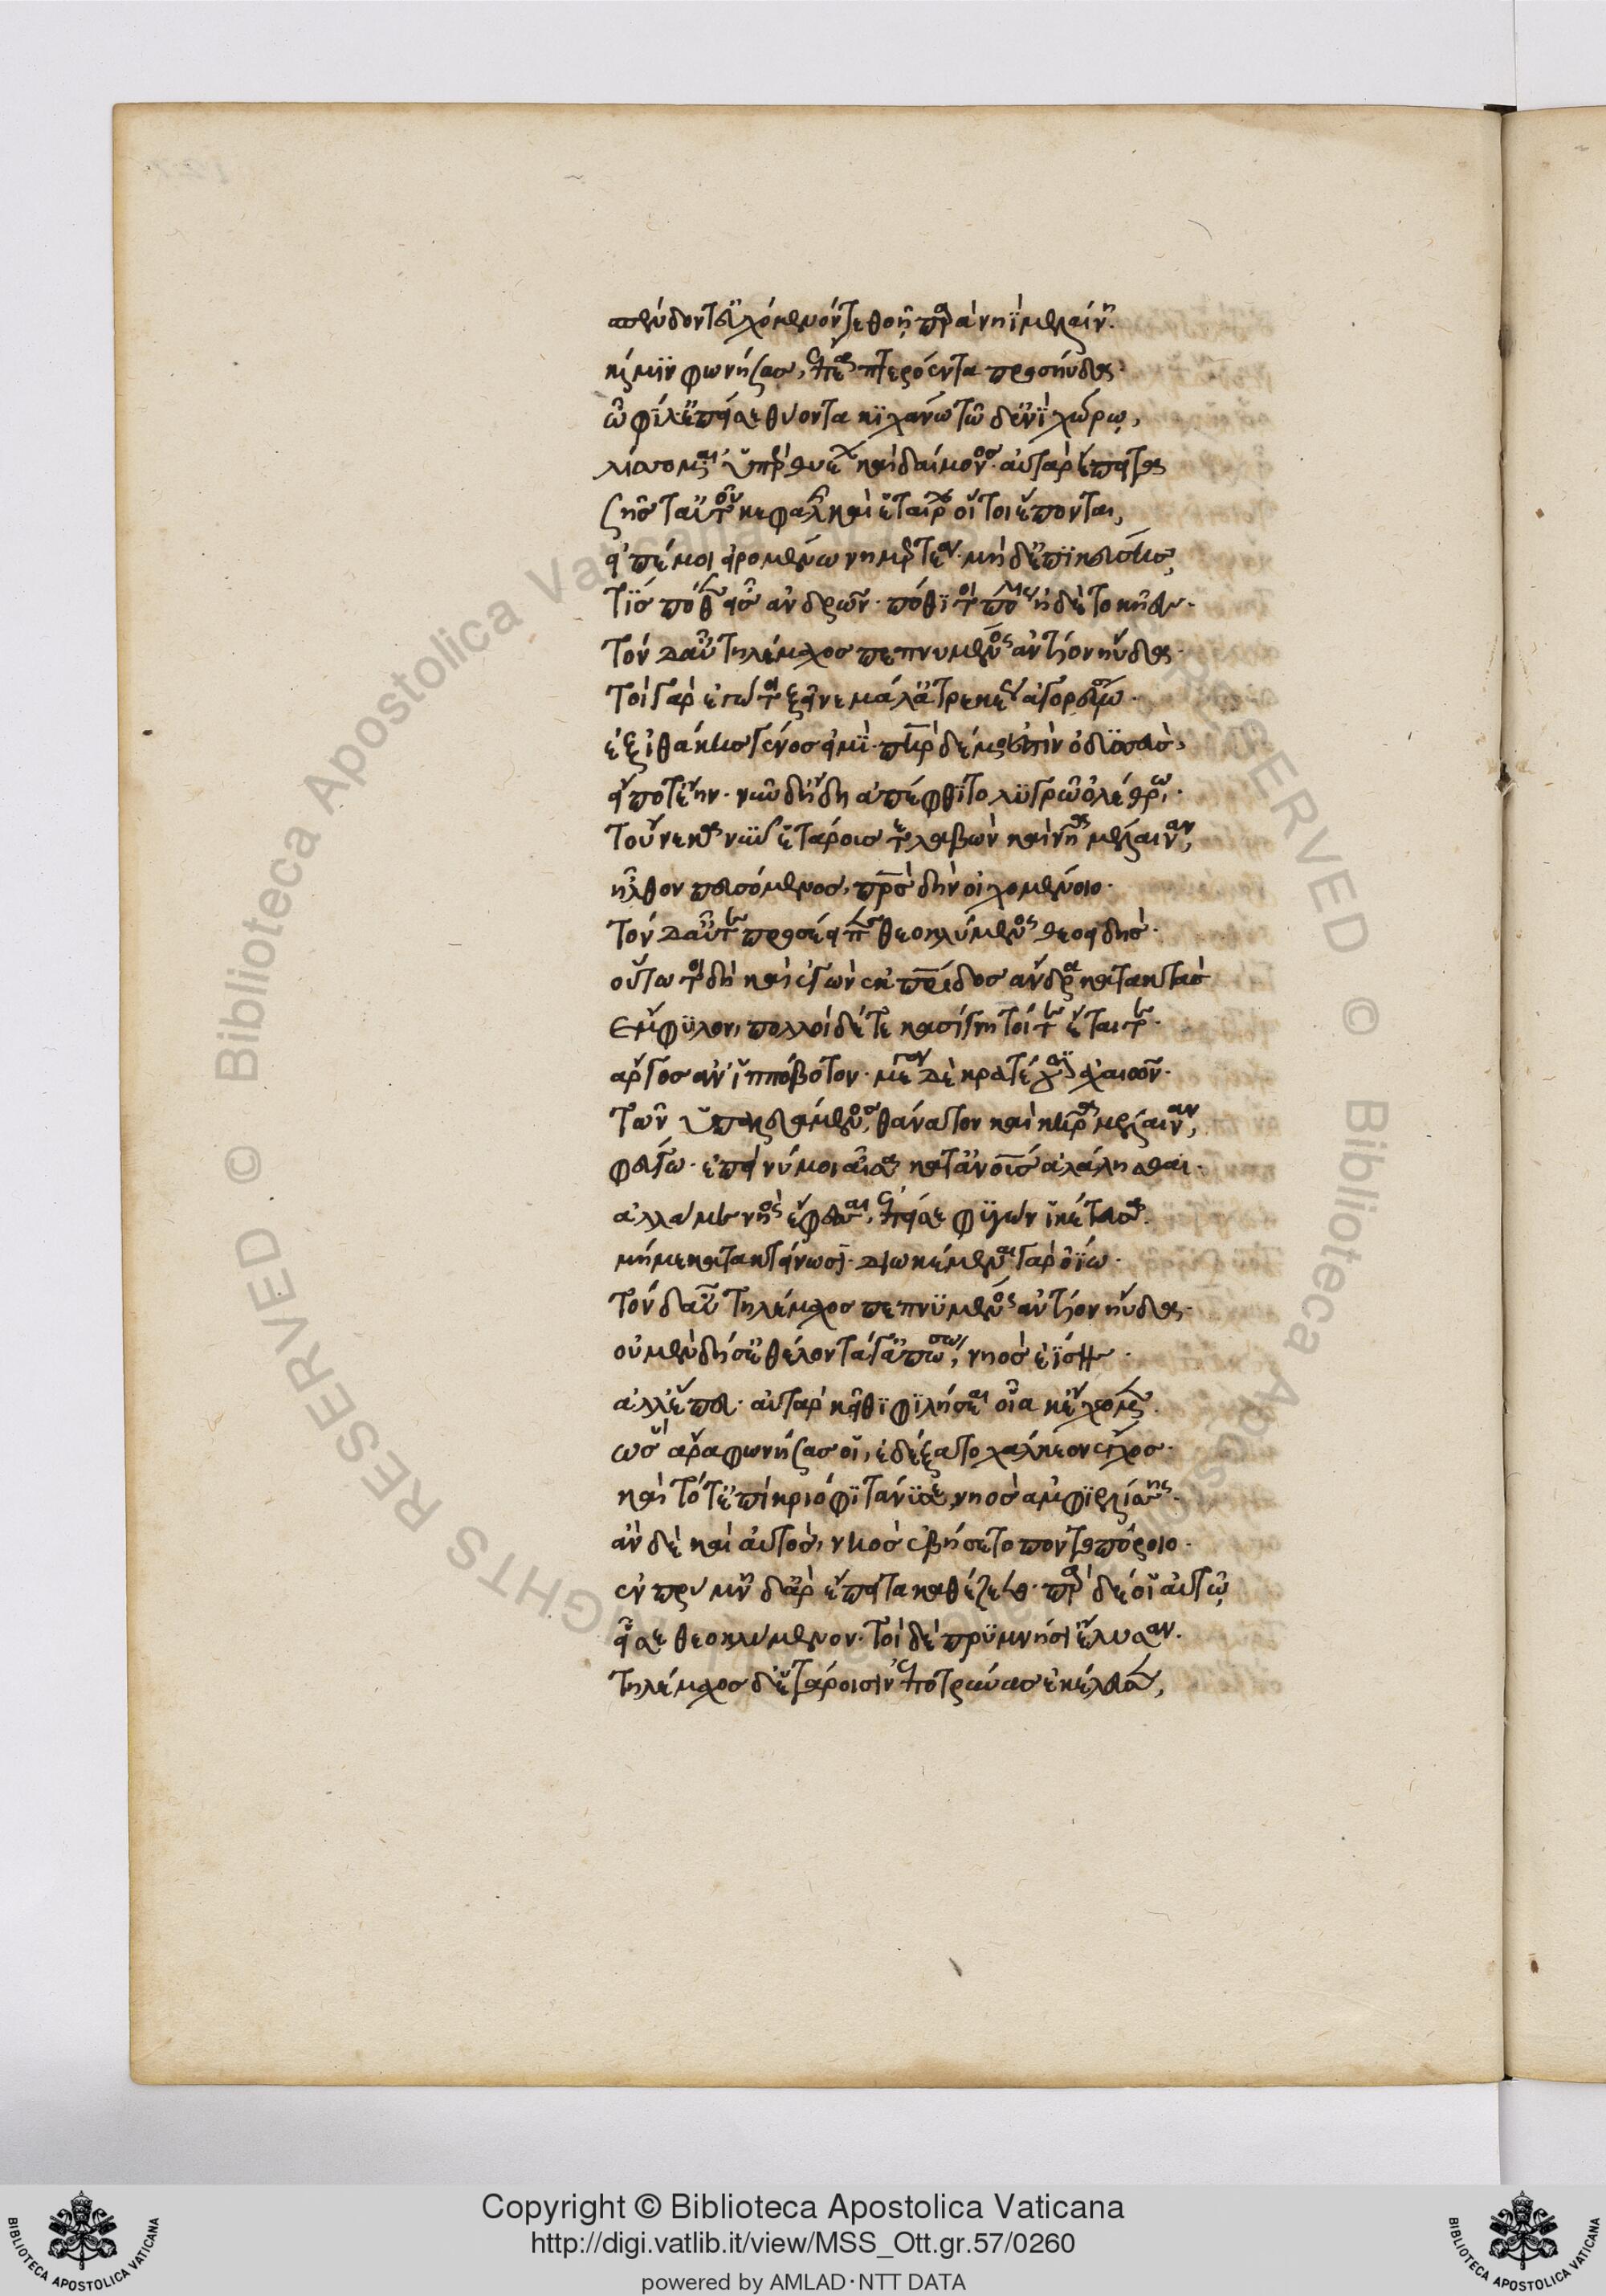 σπένδοντ' εὐχόμενόν τε θοῇ παρὰ νηῒ μελαίνῃ.
καί μιν φωνήσας, ἔπεα πτερόεντα προσηύδα·
ὦ φίλ' ἐπεί σε θύοντα κιχάνω τῷδ' ἐνὶ χώρῳ,
λίσσομ' ὑπὲρ θυέων καὶ δαίμονος· αὐτὰρ ἔπειτα
σῆς τ' αὐτοῦ κεφαλῆς καὶ ἑταίρων οἵ τοι ἕπονται,
εἰπέ μοι εἰρομένω νημερτέα· μὴ δ' ἐπικεύσῃς,
τίς πόθεν εἶς ἀνδρῶν· πόθι τοι πόλις ἠδὲ τοκῆες·
τὸν δ' αὖ τηλέμαχος πεπνυμένος ἀντίον ηὔδα·
τοὶ γὰρ ἐγώ τοι ξεῖνε μάλ' ἀτρεκέως ἀγορεύσω·
ἐξ ἰθάκης γένος εἰμὶ· πατὴρ δέ μοι ἐστὶν ὀδυσσεὺς,
εἴ ποτ' ἔην· νῦν δ' ἤδη ἀπέφθιτο λυγρῷ ὀλέθρῳ·
τοὔνεκα νῦν ἑτάρους τε λαβὼν καὶ νῆα μέλαιναν,
ἦλθον πευσόμενος, πατρὸς δὴν οἰχομένοιο·
τὸν δ' αὖτε προσέειπε θεοκλύμενος θεοειδής·
οὕτω τοι δὴ καὶ ἐγὼν ἐκ πατρίδος ἄνδρα κατακτὰς
ἔμφυλον, πολλοὶ δέ τε κασίγνητοί τε ἔται τε·
ἄργος ἀν' ἱππόβοτον· μέγα δὲ κρατέουσιν ἀχαιῶν·
τῶν ὑπαλευάμενος, θάνατον καὶ κῆρα μέλαιναν,
φεύγω· ἐπεί νύ μοι αἶσα κατ' ἀνθρώπους ἀλάλησθαι·
ἀλλά με νηὸς ἔφεσσαι, ἐπεί σε φυγὼν ἱκέτευσα.
μή με κατακτείνωσι· διωκέμεναι γὰρ ὀΐω·
τὸν δ' αὖ τηλέμαχος πεπνυμένος ἀντίον ηὔδα·
οὐ μὲν δή σ' ἐθέλοντά γ' ἀπώσω, νηὸς ἐΐσης·
ἀλλ' ἕπευ· αὐτὰρ κεῖθι φιλήσεαι οἷά κ' ἔχωμεν.
ὣς ἄρα φωνήσας οἱ, ἐδέξατο χάλκεον ἔγχος·
καὶ τό γ' ἐπ' ἰκριόφι τάνυσε, νηὸς ἀμφιελίσσης·
ἂν δὲ καὶ αὐτὸς, νηὸς ἐβήσετο ποντοπόροιο·
ἐν πρύμνῃ δ' ἄρ' ἔπειτα καθέζετο· παρὰ δέ οἱ αὐτῷ
εἷσε θεοκλύμενον· τοὶ δὲ πρυμνήσι' ἔλυσαν.
τηλέμαχος δ' ἑτάροισιν ἐποτρύνας ἐκέλευσεν,
Copyright © Biblioteca Apostolica Vaticana
http://digi.vatlib.it/view/MSS_Ott.gr.57/0260
powered by AMLAD·NTT DATA